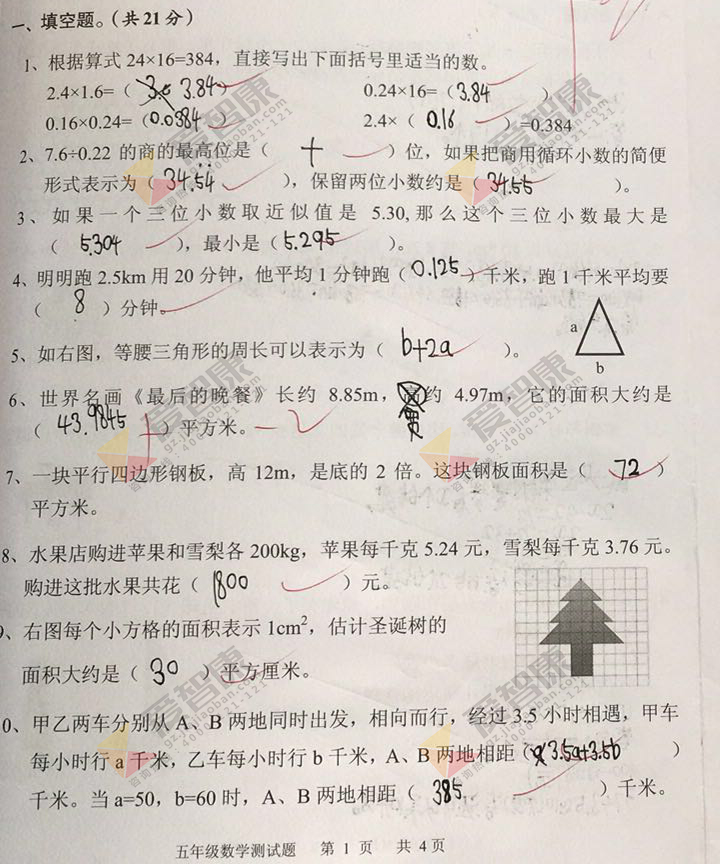 一、填空题。（共21分）
1、根据算式24×16=384，直接写出下面括号里适当的数。
2.4×1.6=（ 3.84 ） 0.24×16=（3.84 ）
0.16×0.24=（0.0384 ） 2.4×（ 0.16 ）=0.384
2、7.6÷0.22 的商的最高位是（ 十 ）位，如果把商用循环小数的简便
形式表示为（34.54 ），保留两位小数约是（34.55 ）。
3、如果一个三位小数取近似值是 5.30,那么这个三位小数最大是
（ 5.304 ），最小是（5.295 ）。
4、明明跑 2.5km 用 20 分钟，他平均 1 分钟跑（0.125 ）千米，跑 1 千米平均要
（ 8 ）分钟。
5、如右图，等腰三角形的周长可以表示为（ b+2a ）。
a
b
6、世界名画《最后的晚餐》长约 8.85m，高约 4.97m，它的面积大约是
宽
（ 43.9845 ）平方米。 -2
7、一块平行四边形钢板，高 12m，是底的 2 倍。这块钢板面积是（ 72 ）
平方米。
8、水果店购进苹果和雪梨各 200kg，苹果每千克 5.24 元，雪梨每千克 3.76 元。
购进这批水果共花（ 1800 ）元。
9、右图每个小方格的面积表示 1cm²，估计圣诞树的
面积大约是（ 30 ）平方厘米。
0、甲乙两车分别从 A、B 两地同时出发，相向而行，经过 3.5 小时相遇，甲车
每小时行 a 千米，乙车每小时行 b 千米，A、B 两地相距（ 3.5a+3.5b ）
千米。当 a=50，b=60 时，A、B 两地相距（ 385 ）千米。
五年级数学测试题 第 1 页 共 4 页
爱智康
gz.jiajiaoban.com
4000-121-121